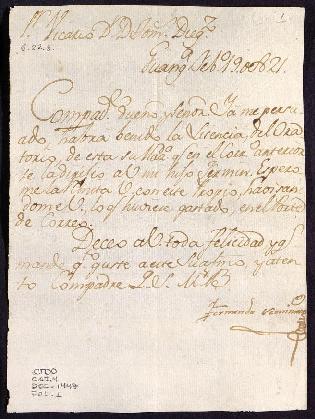 1
Sr. Vicario Dn. D.
6.22.8.
Guanxº Febº 19 de 821.
Compadre dueño y Señor. Ya me persu
ado, habra benido la Licencia del Ora
torio, de esta su Haz.da qe en el Correo anterior
se la dirijio a V. mi hijo Fermin. Espero
me la remita V. con este Propio, havisan
dome V. lo qe huviere gastado, en el Porte
de Correo.
Deceo a V. toda felicidad y qe
mande qe guste a este su afmo. y aten
to Compadre Q. S. M. B.
Fernando
DOC. 1448
FOL. 1